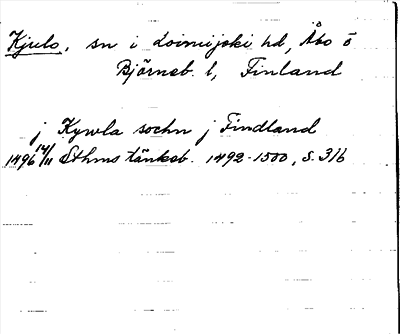 Kjulo, sn i Loimijoki hd, Åbo o
Björneb. l, Finland
j Kywla sochn j Findland
1496 14/11 Sthms tänkeb. 1492-1500, s. 316